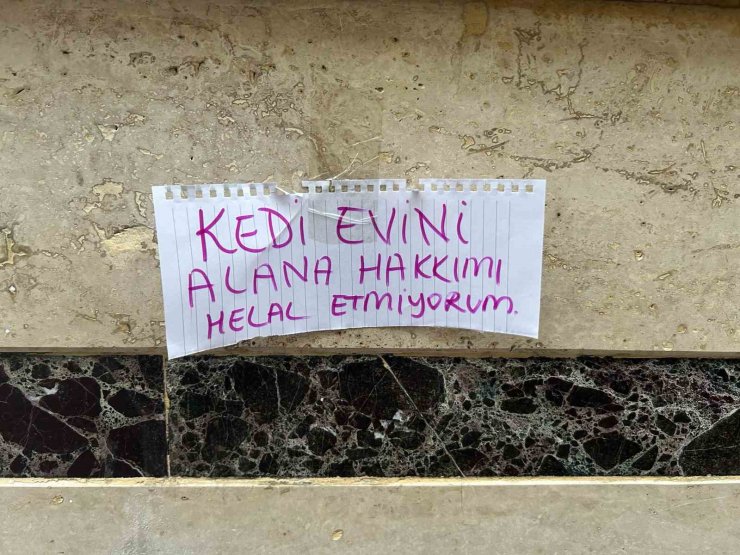 KEDİ EVİNİ
ALANA HAKKIMI
HELAL ETMİYORUM.